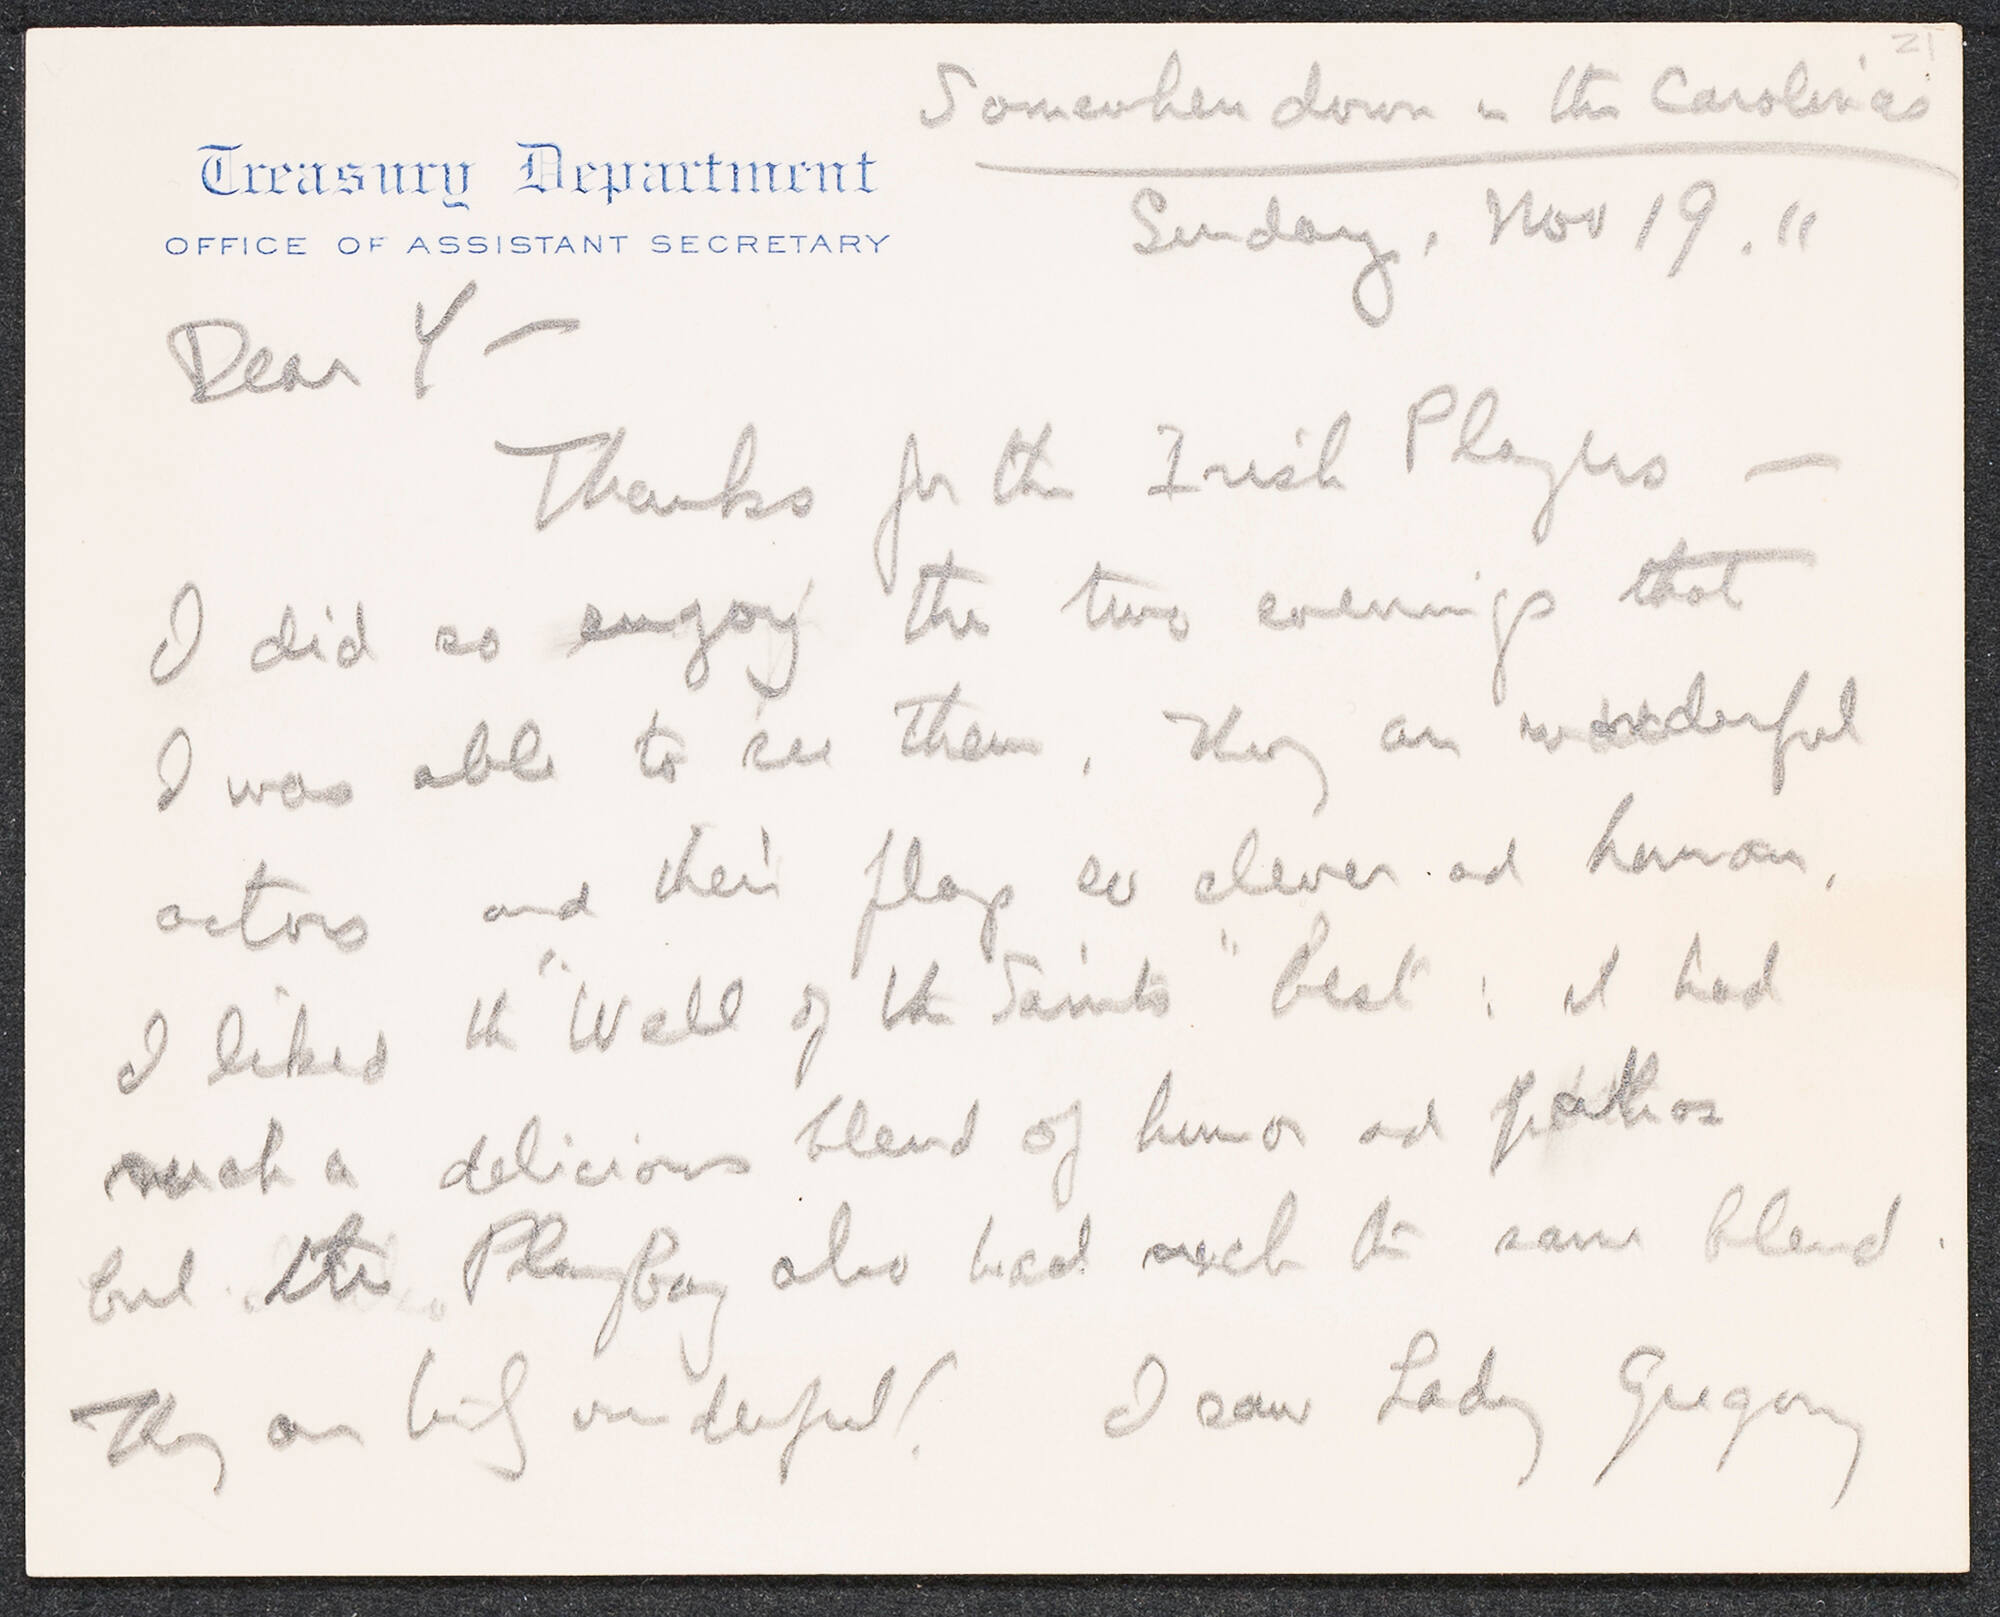 21
Somewhere down in the Carolinas
Treasury Department
OFFICE OF ASSISTANT SECRETARY
Sunday, Nov 19. 11
Dear Y —
Thanks for the Irish Players —
I did so enjoy the two evenings that
I was able to see them. They are wonderful
actors and their plays so clever and human.
I liked the "Well of the Saints" best: it had
such a delicious blend of humor and pathos
but the Playboy also had much the same blend.
They are wonderful! I saw Lady Gregory